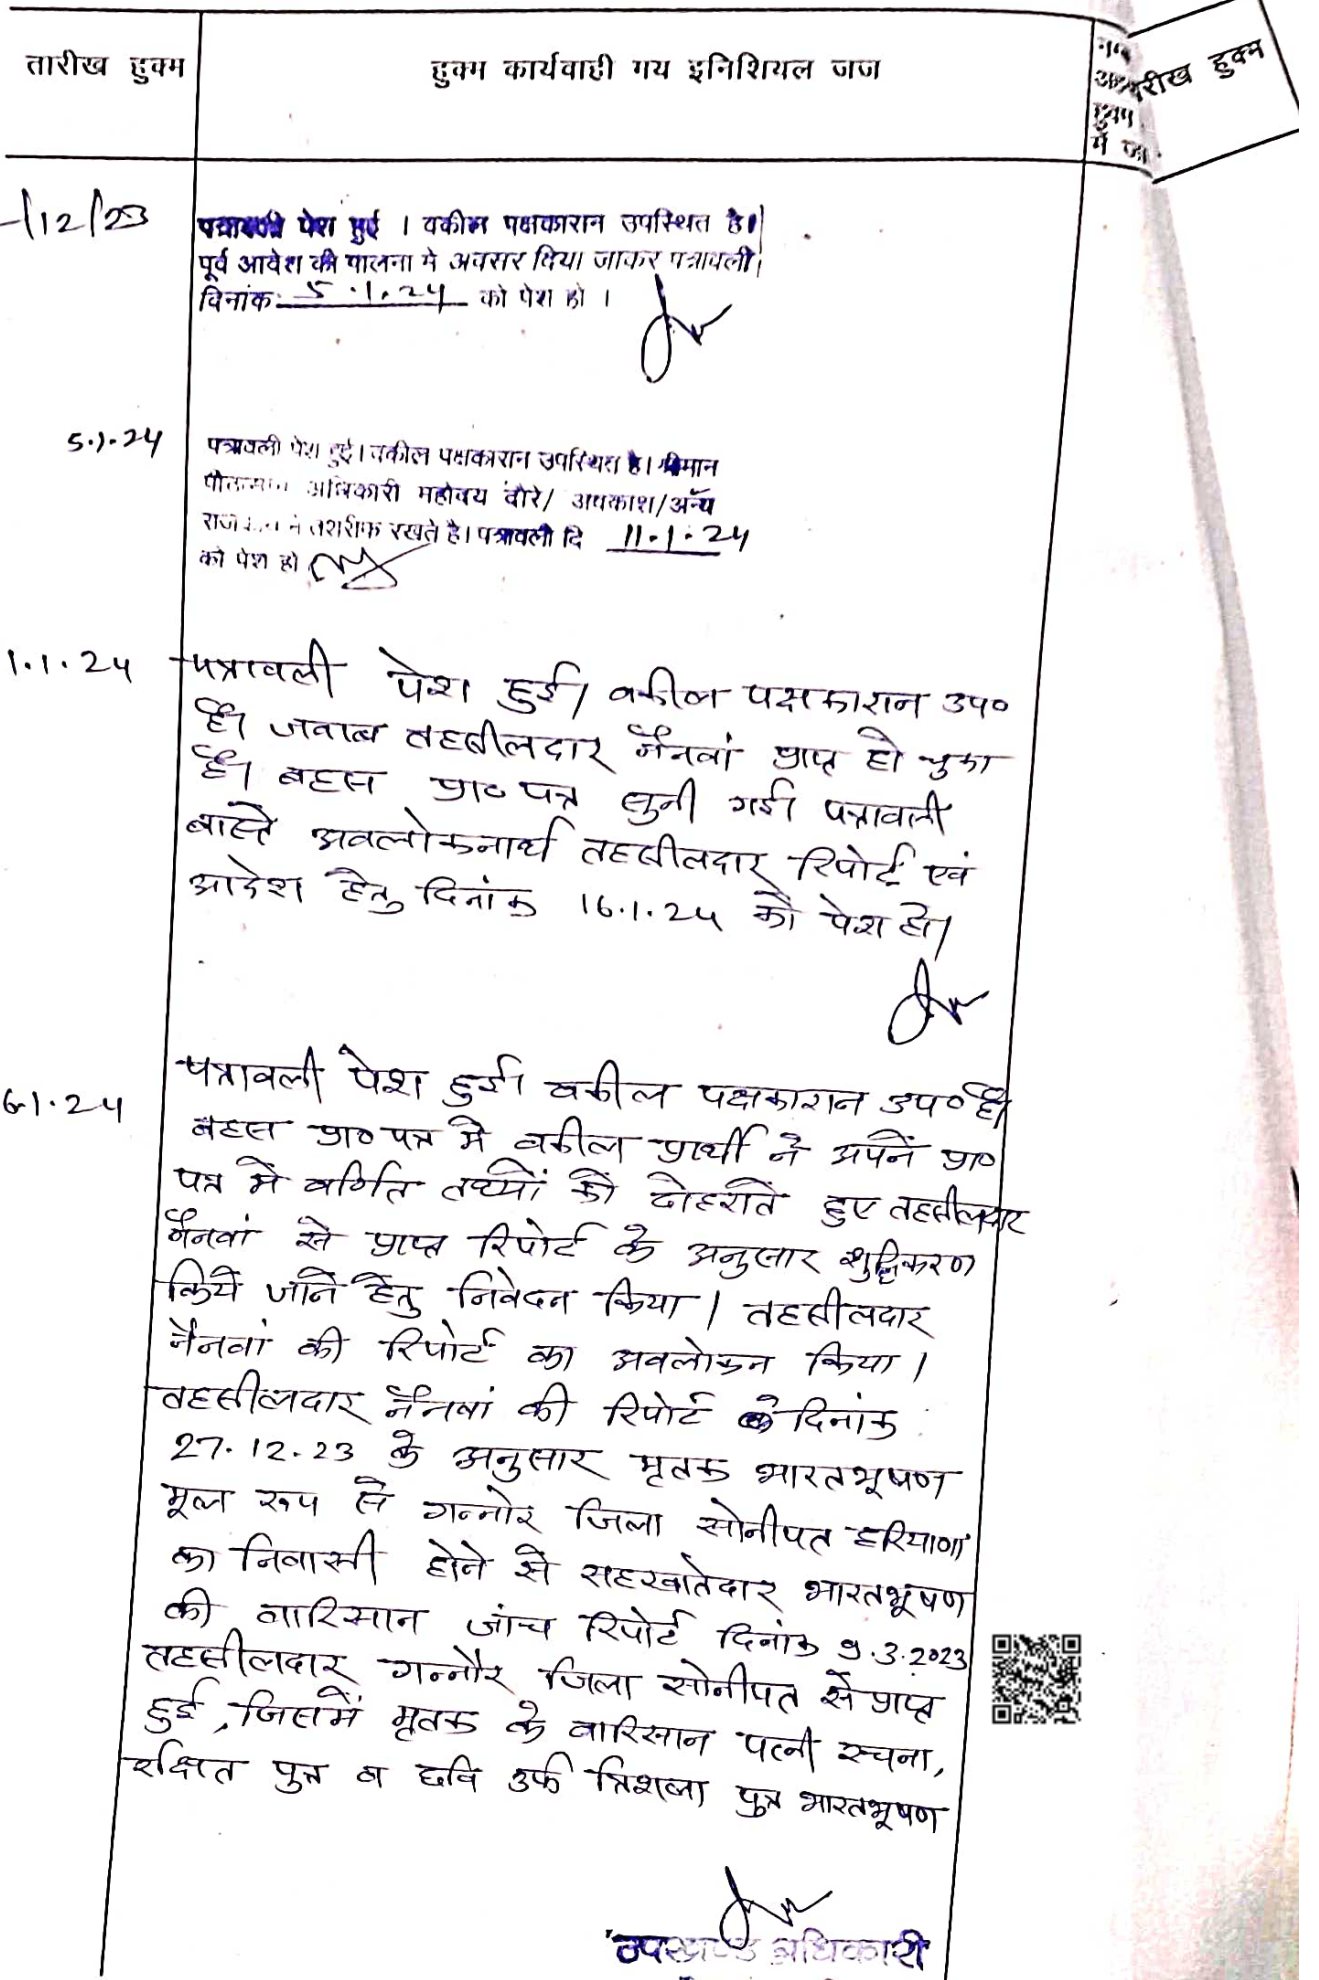 तारीख हुक्म
हुक्म कार्यवाही मय इनिशियल जज
तारीख हुक्म
हुक्म
में जा
/12/23
पत्रावली पेश हुई । वकील पक्षकारान उपस्थित है।
पूर्व आदेश की पालना मे अवसर दिया जाकर पत्रावली
दिनांक 5.1.24 को पेश हो ।
5.1.24
पत्रावली पेश हुई। वकील पक्षकारान उपस्थित है। श्रीमान
अधिकारी महोदय दौरे/ अवकाश/अन्य
तशरीफ रखते है। पत्रावली दि 11.1.24
को पेश हो
1.1.24
पत्रावली पेश हुई। वकील पक्षकारान उप०
है। जवाब तहसीलदार नैनवां प्राप्त हो चुका
है। बहस प्रा० पत्र सुनी गई। पत्रावली
वास्ते अवलोकनार्थ तहसीलदार रिपोर्ट एवं
आदेश हेतु दिनांक 16.1.24 को पेश हो।
6.1.24
पत्रावली पेश हुई। वकील पक्षकारान उप० है।
बहस प्रा० पत्र मे वकील प्रार्थी ने अपनें प्रा०
पत्र में वर्णित तथ्यों को दोहरातें हुए तहसीलदार
नैनवां से प्राप्त रिपोर्ट के अनुसार शुद्धिकरण
किये जाने हेतु निवेदन किया। तहसीलदार
नैनवां की रिपोर्ट का अवलोकन किया।
तहसीलदार नैनवां की रिपोर्ट दिनांक
27.12.23 के अनुसार मृतक भारतभूषण
मूल रूप से गन्नोर जिला सोनीपत हरियाणा
का निवासी होने से सहखातेदार भारतभूषण
की वारिसान जांच रिपोर्ट दिनांक 9.3.2023
तहसीलदार गन्नौर जिला सोनीपत सें प्राप्त
हुई, जिसमें मृतक के वारिसान पत्नी रचना,
रक्षित पुत्र व छवि उर्फ त्रिशला पुत्र भारतभूषण
उपखण्ड अधिकारी